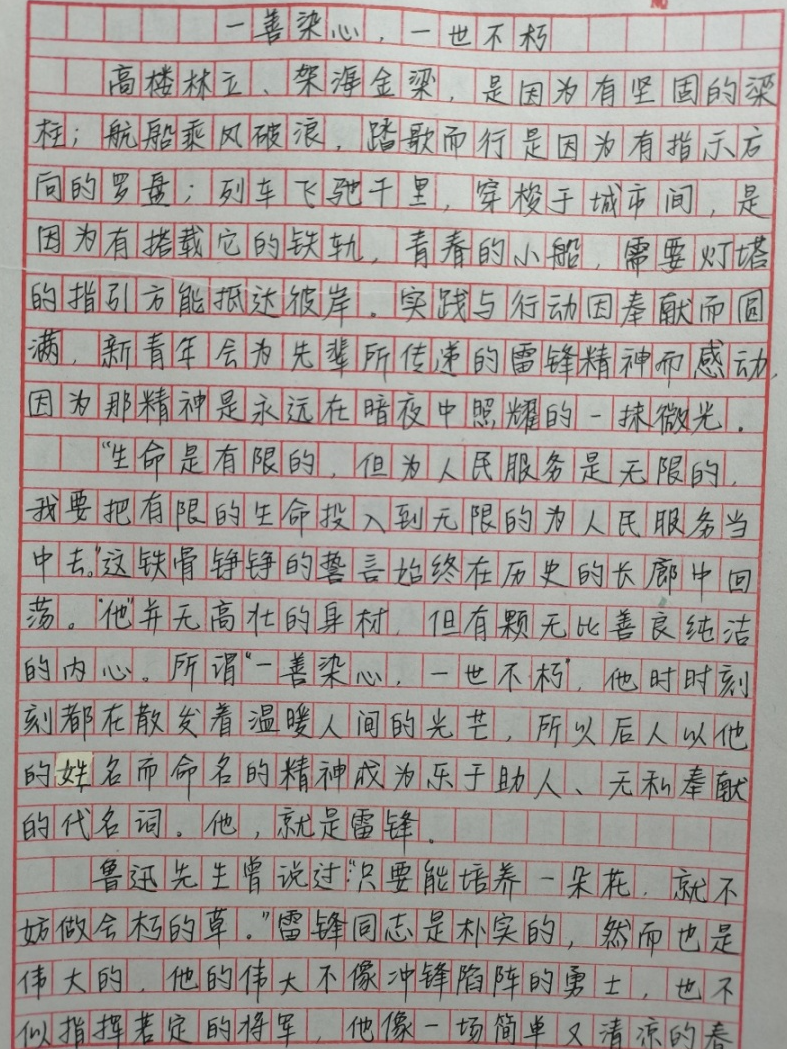 一善染心，一世不朽
高楼林立、架海金梁，是因为有坚固的梁
柱；航船乘风破浪，踏歌而行是因为有指示方
向的罗盘；列车飞驰千里，穿梭于城市间，是
因为有搭载它的铁轨，青春的小船，需要灯塔
的指引方能抵达彼岸。实践与行动因奉献而圆
满，新青年会为先辈所传递的雷锋精神而感动，
因为那精神是永远在暗夜中照耀的一抹微光.
“生命是有限的，但为人民服务是无限的，
我要把有限的生命投入到无限的为人民服务当
中去。”这铁骨铮铮的誓言始终在历史的长廊中回
荡。“他”并无高壮的身材，但有颗无比善良纯洁
的内心。所谓“一善染心，一世不朽”，他时时刻
刻都在散发着温暖人间的光芒，所以后人以他
的姓名而命名的精神成为乐于助人、无私奉献
的代名词。他，就是雷锋.
鲁迅先生曾说过：“只要能培养一朵花，就不
妨做会朽的草。”雷锋同志是朴实的，然而也是
伟大的，他的伟大不像冲锋陷阵的勇士，也不
似指挥若定的将军，他像一场简单又清凉的春